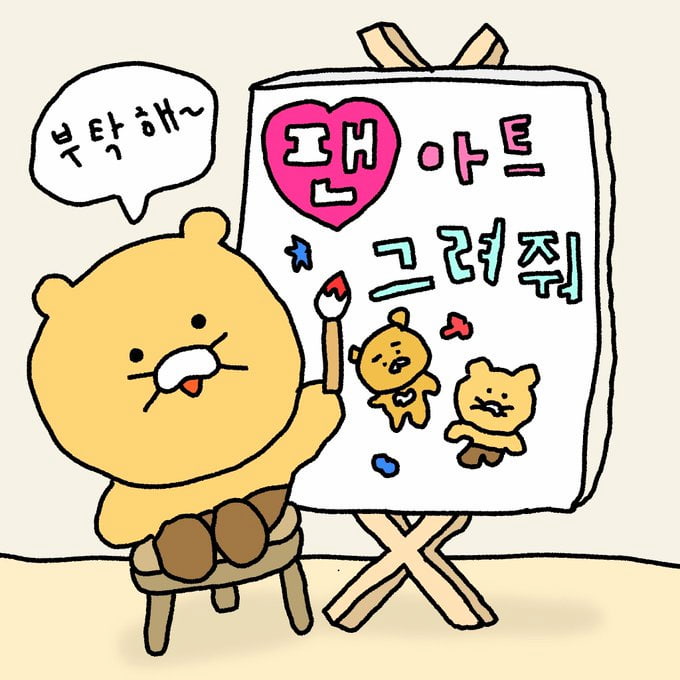 부탁해~
팬 아트
그려줘